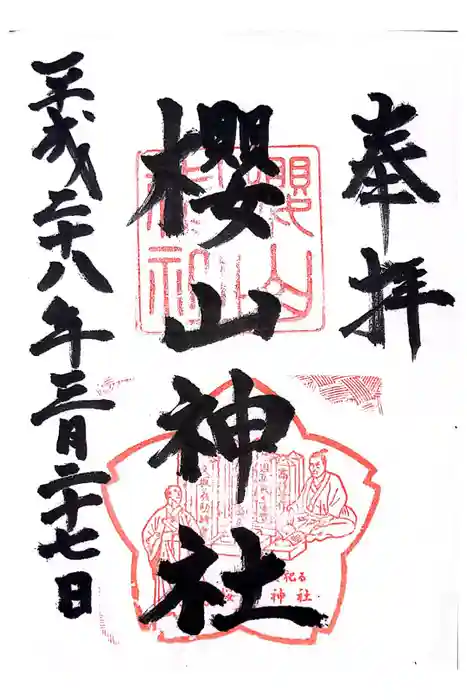 奉拝
櫻山神社
平成二十八年三月二十七日
櫻山神社
祀る
神社